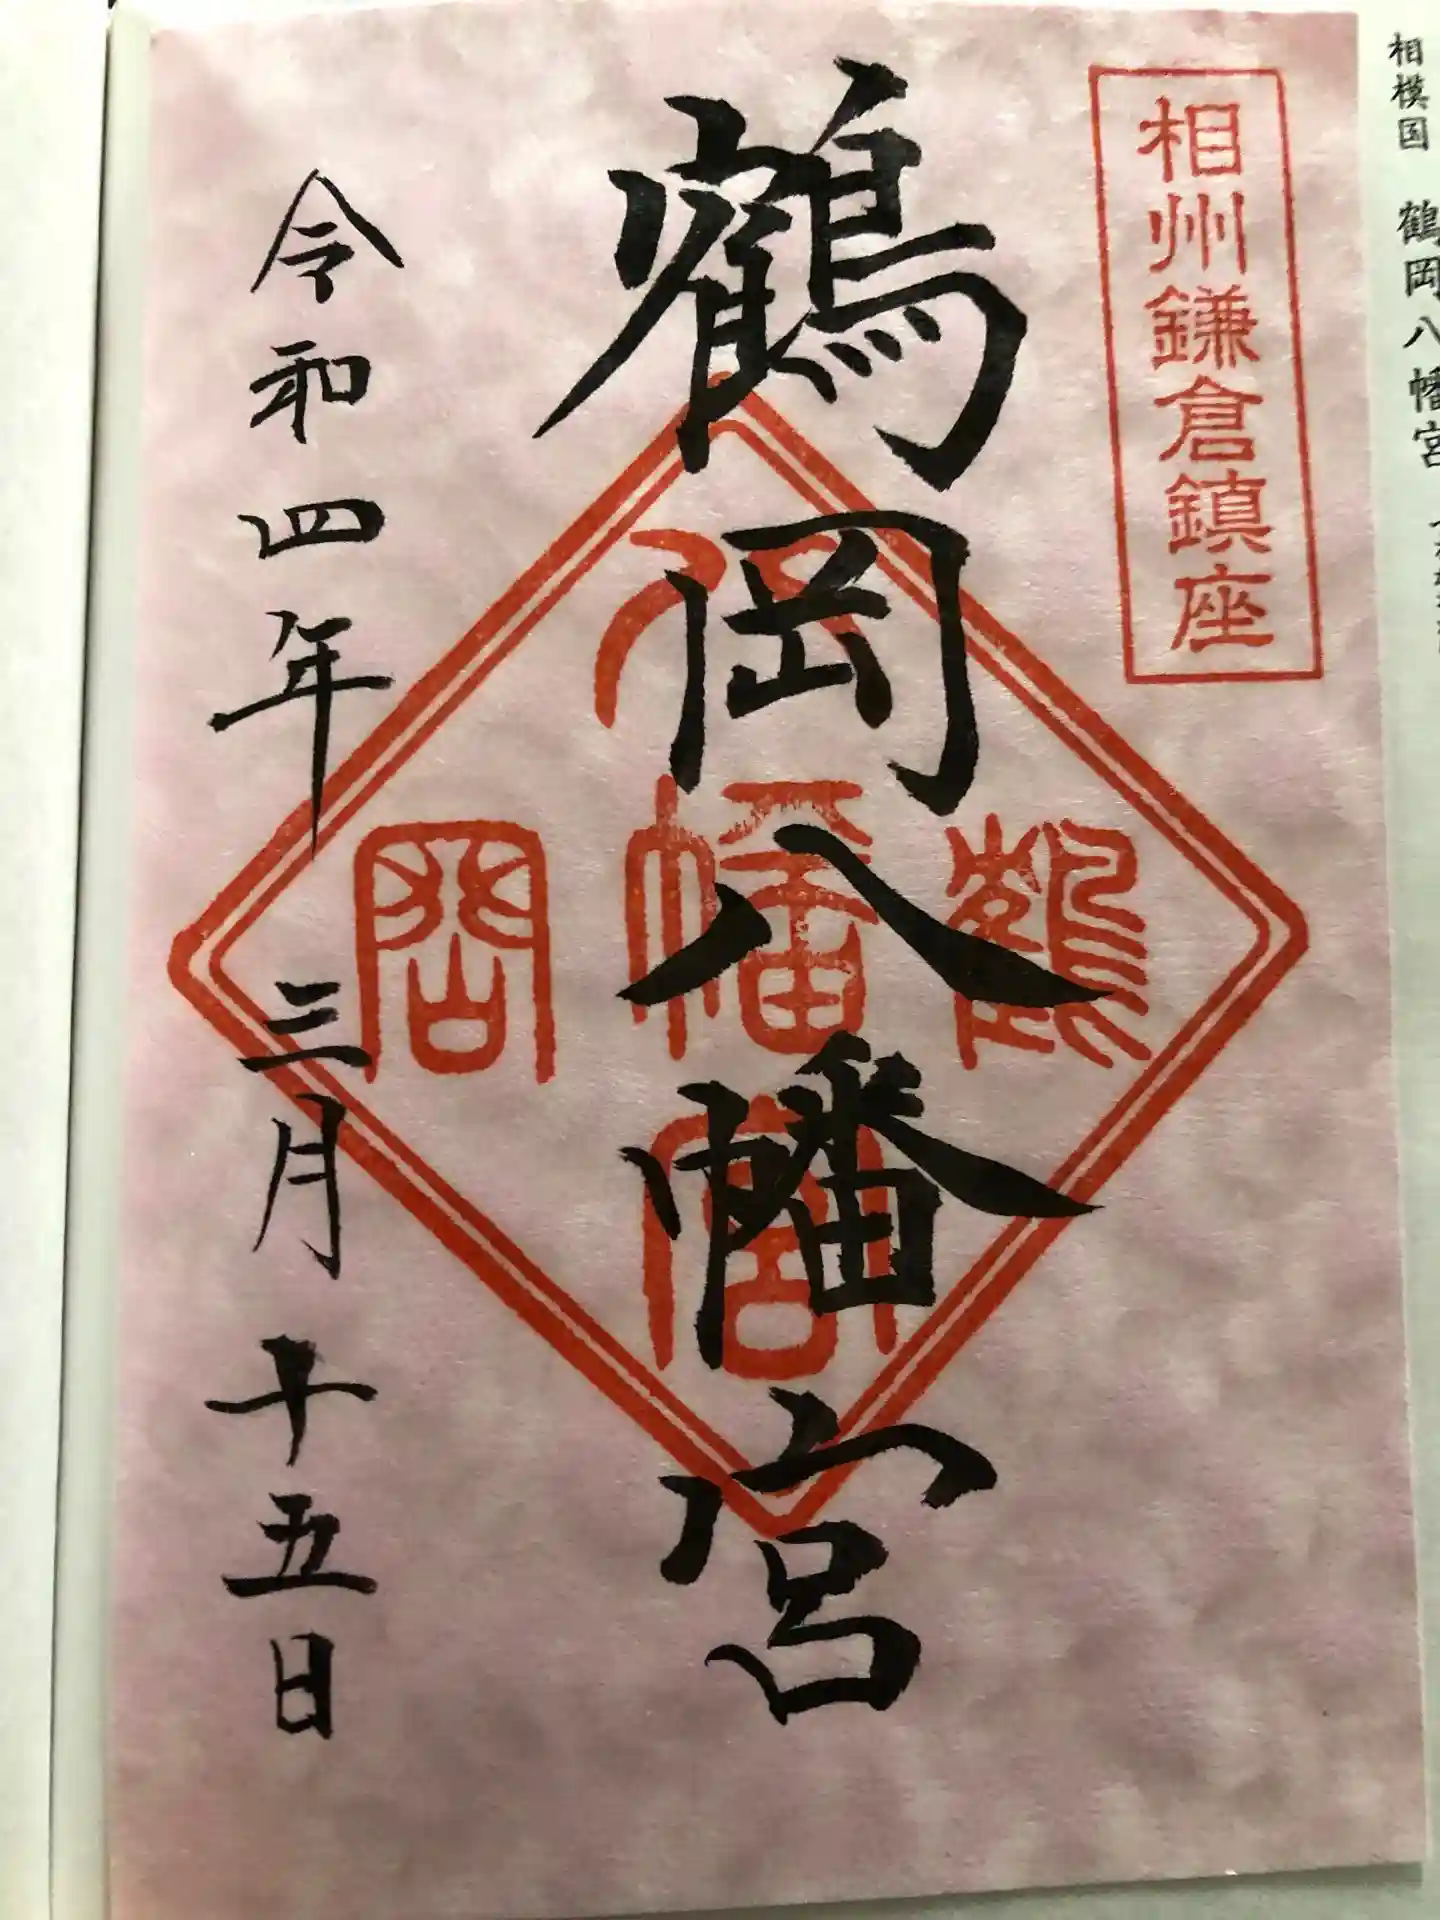 相模国 鶴岡八幡宮
相州鎌倉鎮座
鶴岡八幡宮
鶴岡八幡宮
令和四年三月十五日